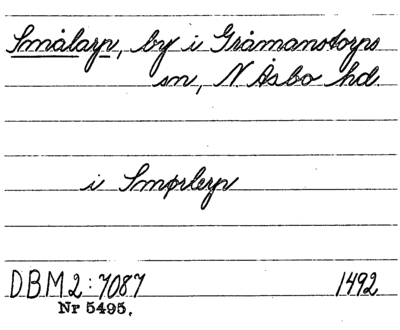 Smålaryp, by i Gråmanstorps
sn, N. Åsbo hd.
i Smørleryp
DBM 2:7087 1492
Nr 5495.